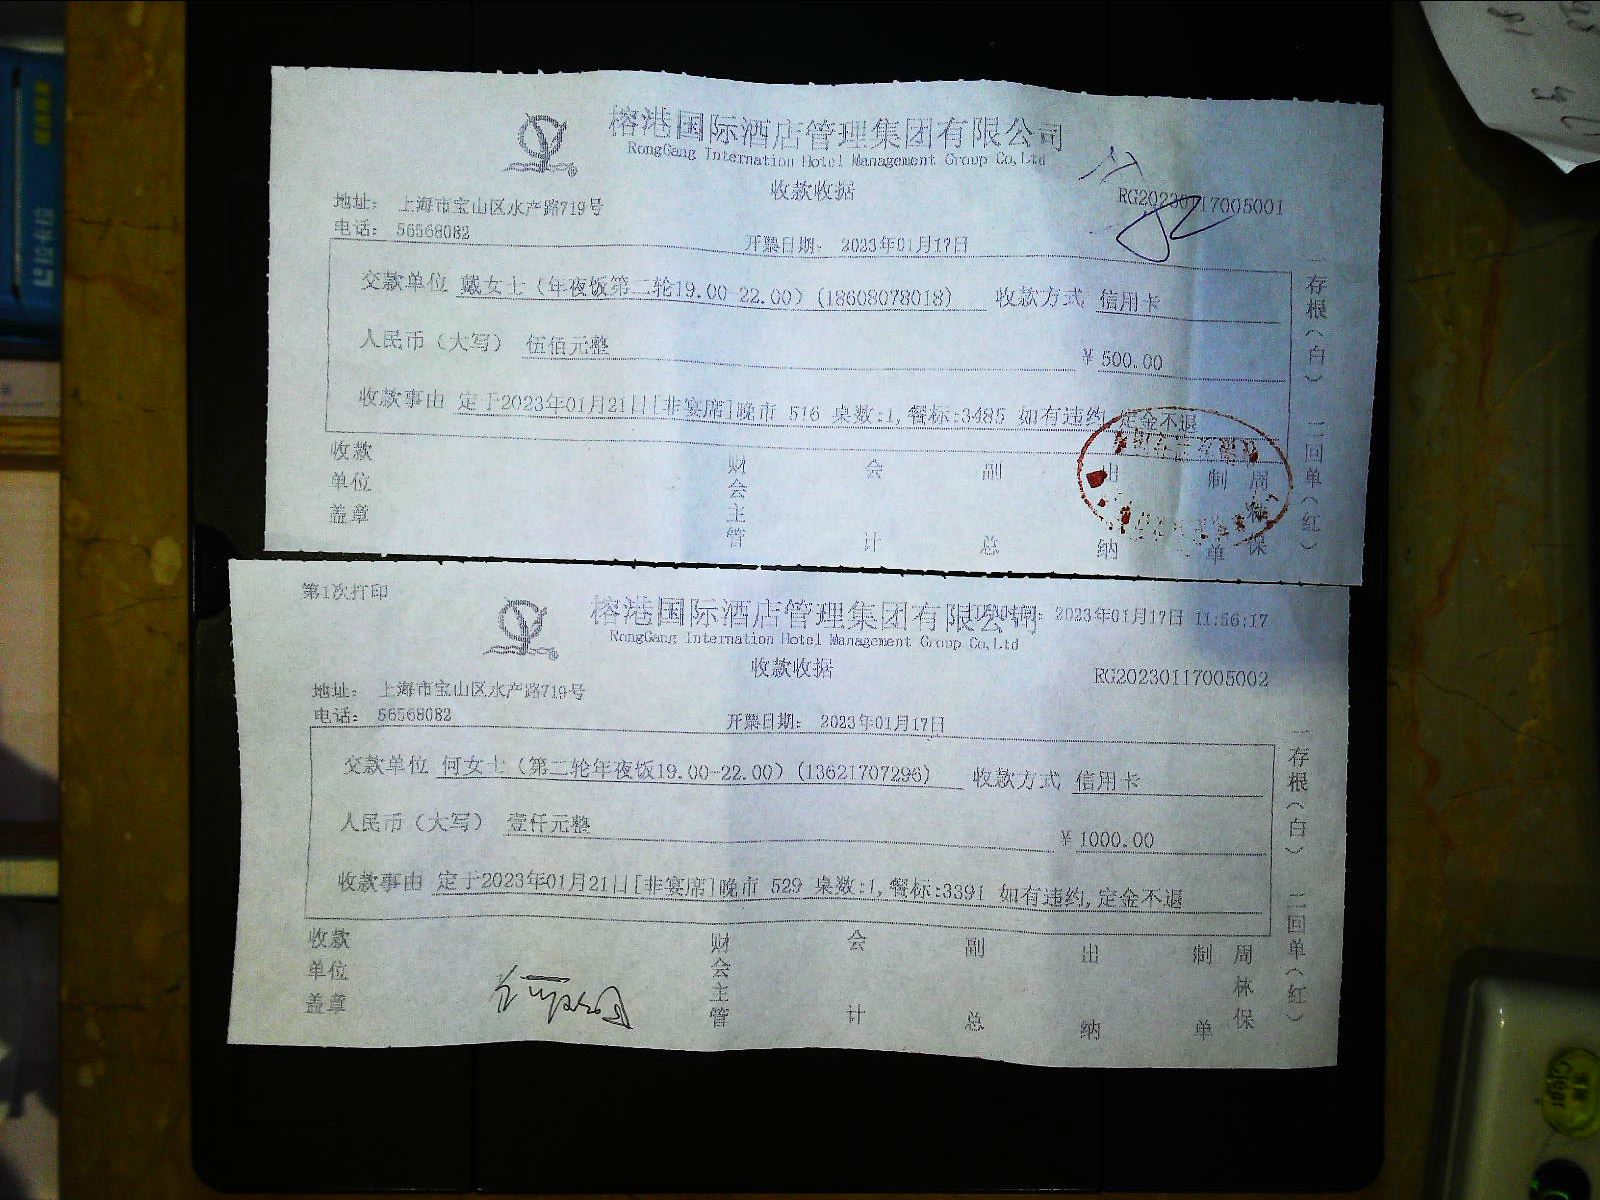 榕港国际酒店管理集团有限公司
RongGang Internation Hotel Management Group Co,Ltd
收款收据
RG20230117005001
地址： 上海市宝山区水产路719号
电话： 56568082
开票日期： 2023年01月17日
交款单位 戴女士（年夜饭第二轮19.00-22.00）(18608078018) 收款方式 信用卡
人民币（大写） 伍佰元整 ￥500.00
收款事由 定于2023年01月21日[非宴席]晚市 516 桌数:1,餐标:3485 如有违约,定金不退
收款单位盖章 财会主管 会计 副总 出纳 制单 周林保
一存根（白） 二回单（红）
第1次打印
2023年01月17日 11:56:17
榕港国际酒店管理集团有限公司
RongGang Internation Hotel Management Group Co,Ltd
收款收据
RG20230117005002
地址： 上海市宝山区水产路719号
电话： 56568082
开票日期： 2023年01月17日
交款单位 何女士（第二轮年夜饭19.00-22.00）(13621707296) 收款方式 信用卡
人民币（大写） 壹仟元整 ￥1000.00
收款事由 定于2023年01月21日[非宴席]晚市 529 桌数:1,餐标:3391 如有违约,定金不退
收款单位盖章 财会主管 会计 副总 出纳 制单 周林保
一存根（白） 二回单（红）
Clear